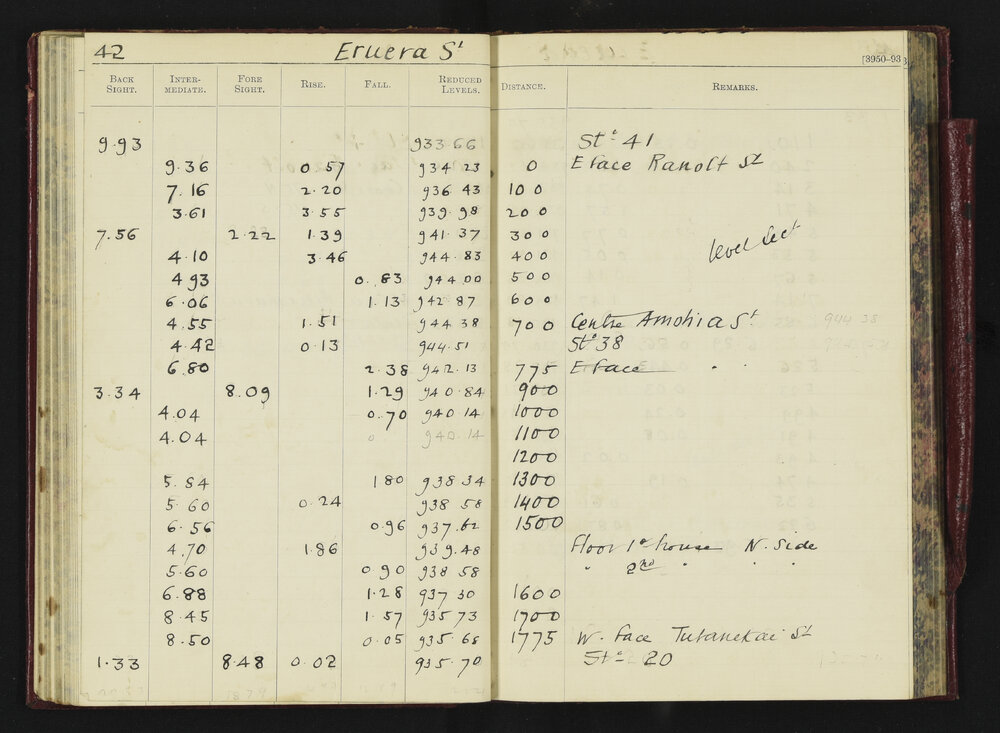 42 Eruera St
[3950–93
BACK SIGHT. INTER-MEDIATE. FORE SIGHT. RISE. FALL. REDUCED LEVELS. DISTANCE. REMARKS.
9.93 933 66 Stn 41
9.36 0.57 934 23 0 E face Ranolf St
7.16 2.20 936 43 100
3.61 3.55 939.98 200
7.56 2.22 1.39 941 37 300
4.10 3.46 944 83 400 level Sect
4 93 0.83 944 00 500
6.06 1.13 942 87 600
4.55 1.51 944 38 700 Centre Amohia St 944 38
4.42 0.13 944.51 Stn 38
6.80 2.38 942.13 775 E face " "
3.34 8.09 1.29 940.84 900
4.04 0.70 940 14 1000
4.04 0 940.14 1100
1200
5.84 1 80 938 34 1300
5.60 0.24 938 58 1400
6.56 0.96 937.62 1500
4.70 1.86 939.48 Floor 1st house N. Side
5.60 0.90 938 58 " 2nd " " "
6.88 1.28 937 30 1600
8.45 1.57 935 73 1700
8.50 0.05 935 68 1775 W. face Tutanekai St
1.33 8.48 0.02 935.70 Stn 20